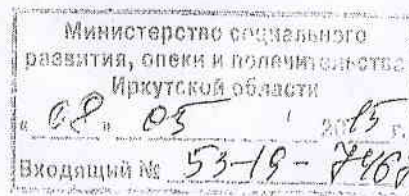 Министерство социального
развития, опеки и попечительства
Иркутской области
« 08 » 05 2015 г.
Входящий № 53-19-